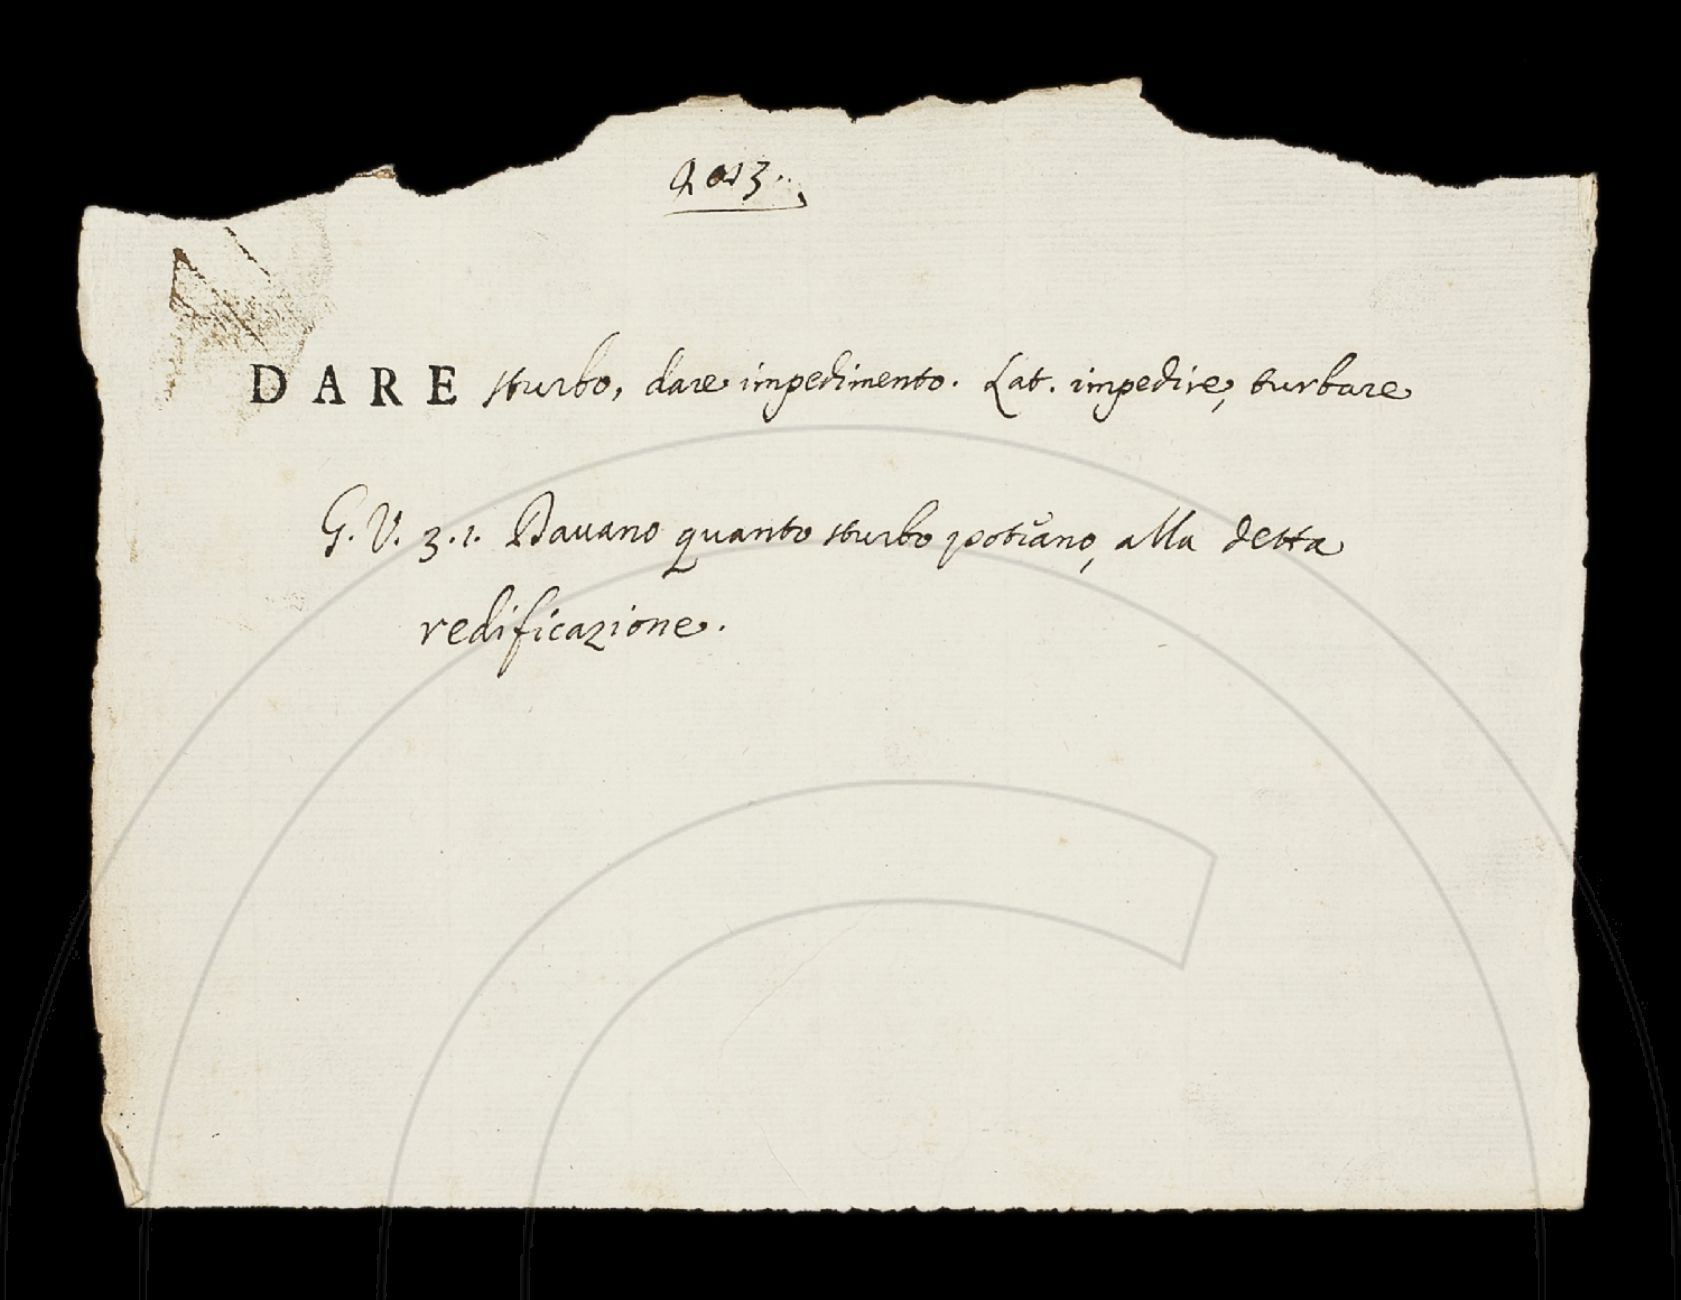 DARE sturbo, dare impedimento. Lat. impedire, turbare
G. V. 3. 1. Davano quanto sturbo potěano, alla detta
redificazione.